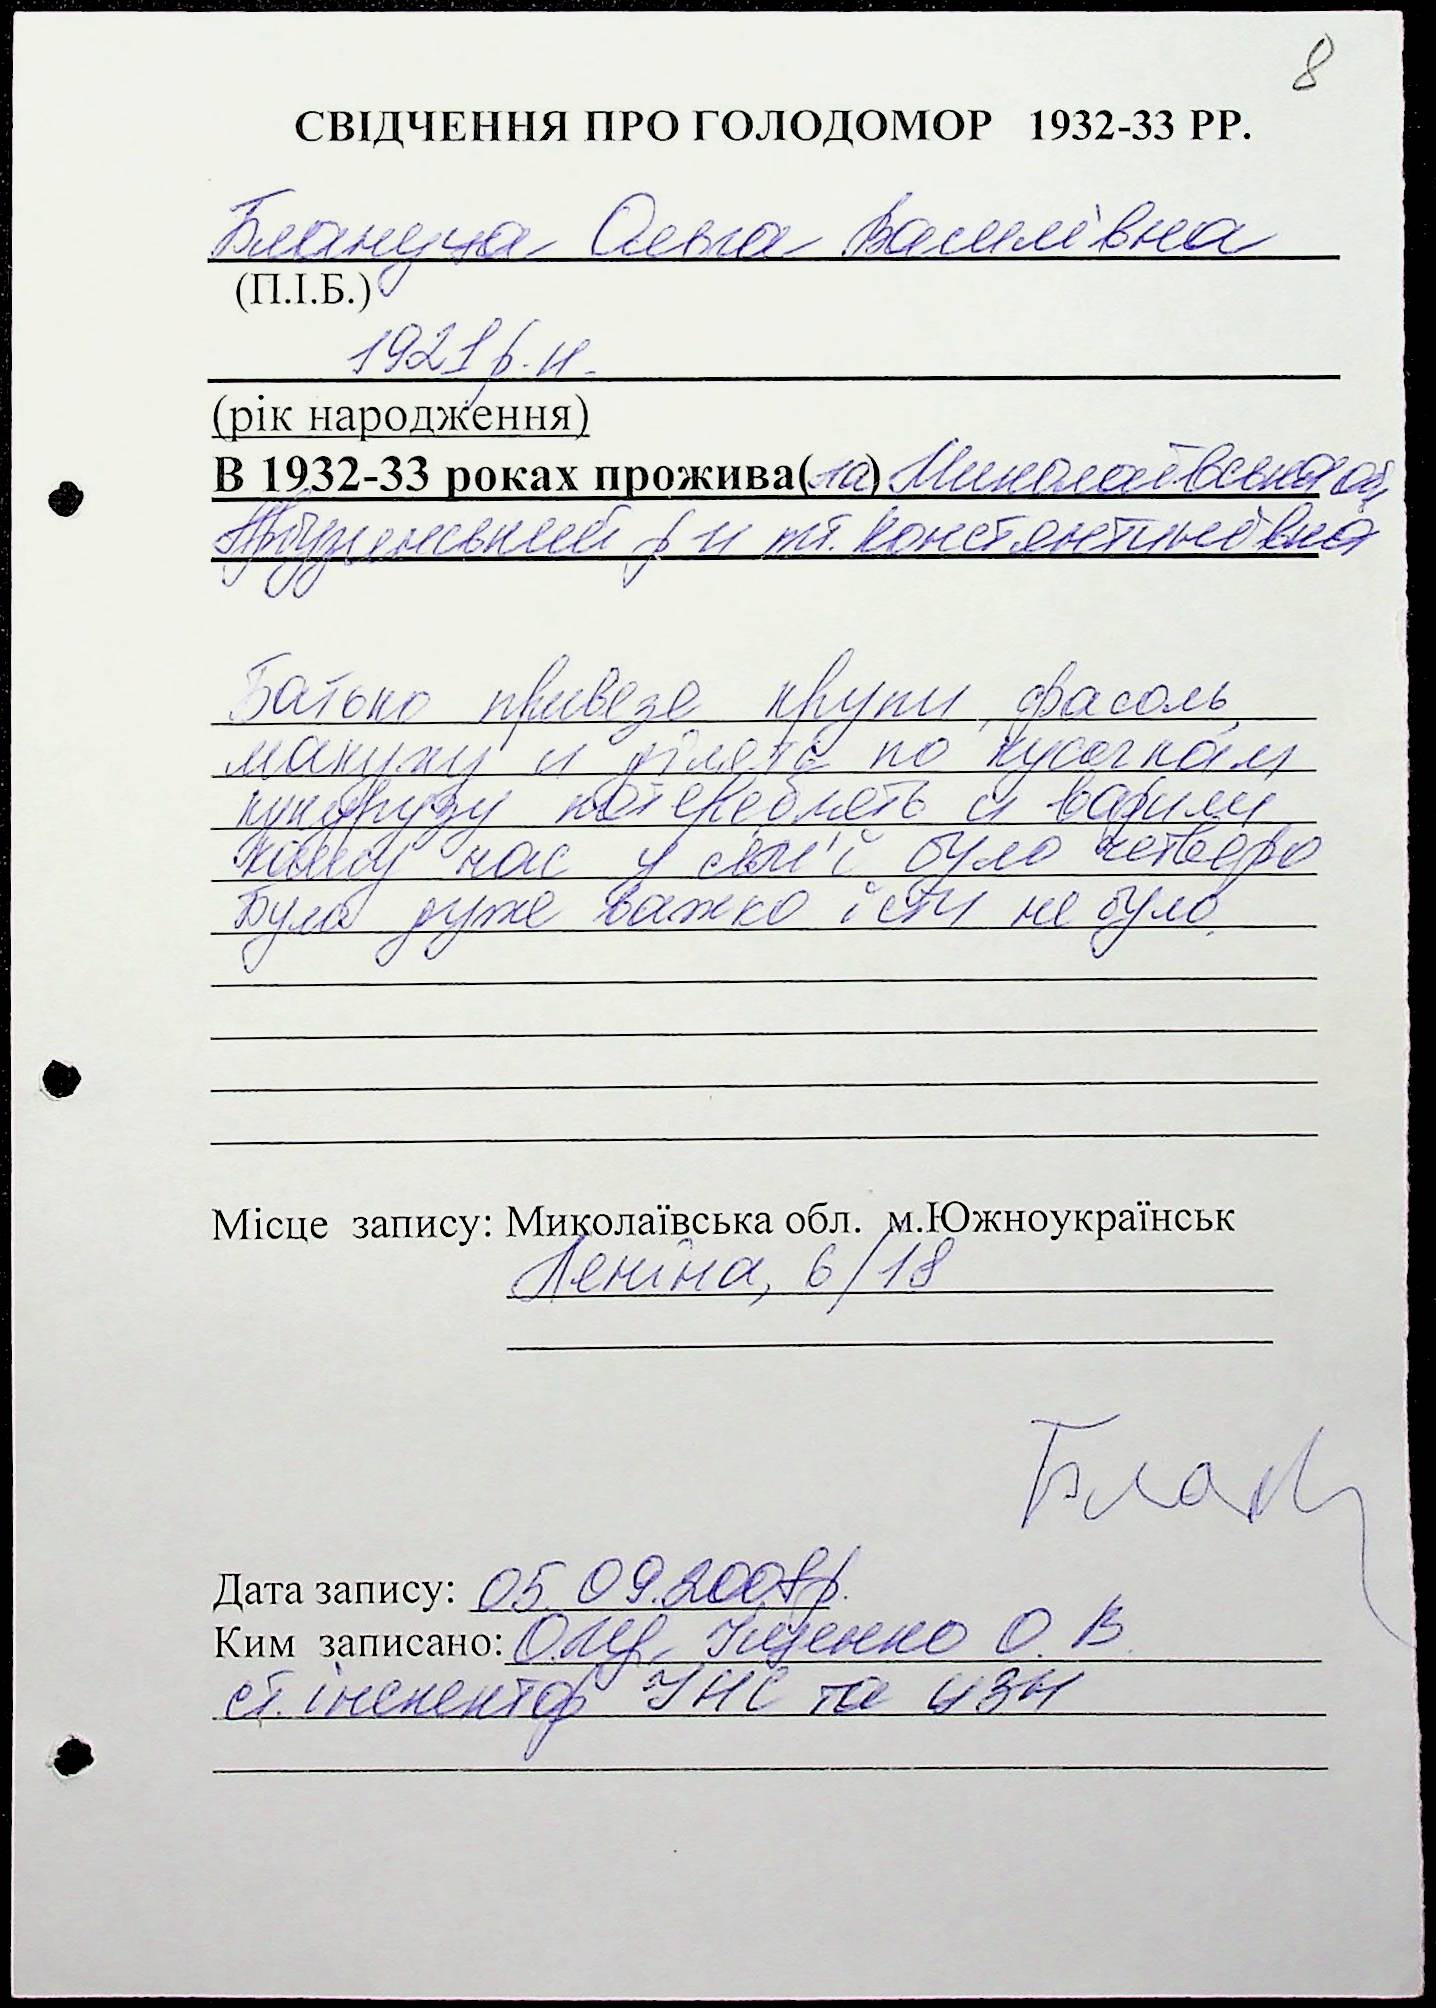 8
СВІДЧЕННЯ ПРО ГОЛОДОМОР 1932-33 РР.
Блануца Ольга Василівна
(П.І.Б.)
1921 р.н.
(рік народження)
В 1932-33 роках прожива(ла) Миколаївська об,
Арбузинський р-н смт. Константинівка
Батько привезе крупи, фасоль,
макуху и ділять по кусочкам
кукурузу потереблять и варили
кашу нас у сім'ї було четверо
Було дуже важко їсти не було.
Місце запису: Миколаївська обл. м.Южноукраїнськ
Леніна, 6/18
Дата запису: 05.09.2008р.
Ким записано: Іщенко О. В.
ст. інспектор УНС та ЦЗН